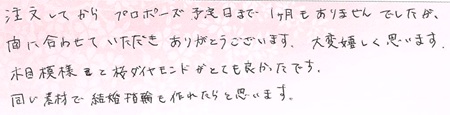 注文してから プロポーズ 予定日まで 1ヶ月もありませんでしたが、
間に合わせて いただき ありがとうございます. 大変嬉しく思います.
木目模様と 桜ダイヤモンドがとても良かったです.
同じ素材で 結婚指輪も作れたらと思います.